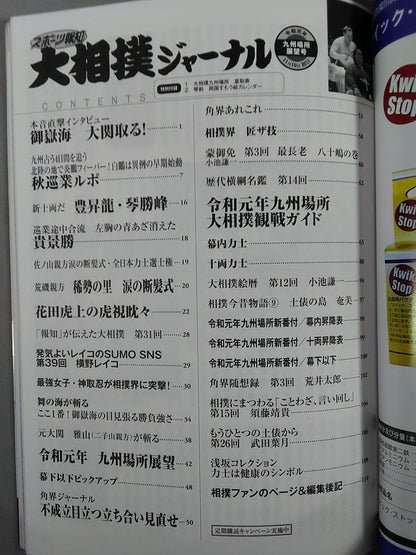 スポーツ報知
大相撲ジャーナル
令和元年
九州場所
展望号
11月10日初日
CONTENTS
特別付録
1 大相撲九州場所 星取表
2 琴剣 両国すもう絵カレンダー
本音直撃インタビュー
御嶽海 大関取る! 1
九州占う4日間を追う
北陸の地で炎鵬フィーバー!白鵬は異例の早期始動
秋巡業ルポ 7
新十両だ 豊昇龍・琴勝峰 16
巡業途中合流 左胸の青あざ消えた
貴景勝 18
佐ノ山親方涙の断髪式・全日本力士選士権 19
荒磯親方 稀勢の里 涙の断髪式 20
花田虎上の虎視眈々 22
「報知」が伝えた大相撲 第31回 28
発気よいレイコのSUMO SNS
第39回 横野レイコ 29
最強女子・神取忍が相撲界に突撃! 30
舞の海が斬る
ここ1番!御嶽海の目見張る勝負強さ 34
元大関 雅山(二子山親方)が斬る
令和元年 九州場所展望 42
幕下以下ピックアップ 48
角界ジャーナル
不成立目立つ立ち合い見直せ 50
角界あれこれ 51
相撲界 匠ザ技 53
蒙御免 第3回 最長老 八十嶋の巻
小池謙一
歴代横綱名鑑 第14回 62
令和元年九州場所
大相撲観戦ガイド
幕内力士 65
十両力士 88
大相撲絵暦 第12回 小池謙一 94
相撲今昔物語⑨ 土俵の島 奄美 97
令和元年九州場所新番付/幕内昇降表 98
令和元年九州場所新番付/十両昇降表 99
令和元年九州場所新番付/幕下以下 100
角界随想録 第3回 荒井太郎 102
相撲にまつわる「ことわざ、言い回し」
第15回 須藤靖貴 104
もうひとつの土俵から
第26回 武田葉月 106
浅坂コレクション
力士は健康のシンボル 108
相撲ファンのページ&編集後記 110
定期購読キャンペーン実施中
Kwik
Stop
Kwik
Stop